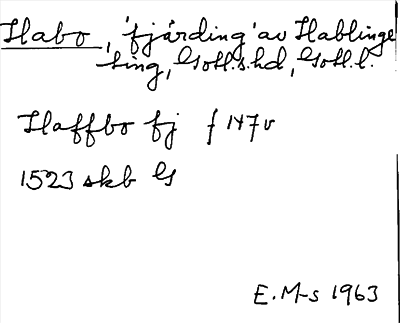 Habo, 'fjärding' av Hablinge
ting, Gotl.s.hd, Gotl.l.
Haffbo fj f 147v
1523 skb G
E. M-s 1963